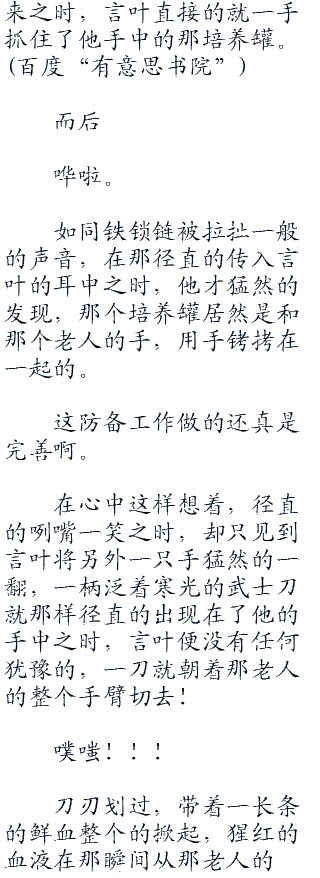 来之时，言叶直接的就一手
抓住了他手中的那培养罐。
(百度“有意思书院”)
而后
哗啦。
如同铁锁链被拉扯一般
的声音，在那径直的传入言
叶的耳中之时，他才猛然的
发现，那个培养罐居然是和
那个老人的手，用手铐拷在
一起的。
这防备工作做的还真是
完善啊。
在心中这样想着，径直
的咧嘴一笑之时，却只见到
言叶将另外一只手猛然的一
翻，一柄泛着寒光的武士刀
就那样径直的出现在了他的
手中之时，言叶便没有任何
犹豫的，一刀就朝着那老人
的整个手臂切去！
噗嗤！！！
刀刃划过，带着一长条
的鲜血整个的掀起，猩红的
血液在那瞬间从那老人的